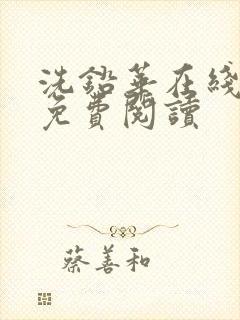 洗鉛華在綫
免費閱讀
蔡善和